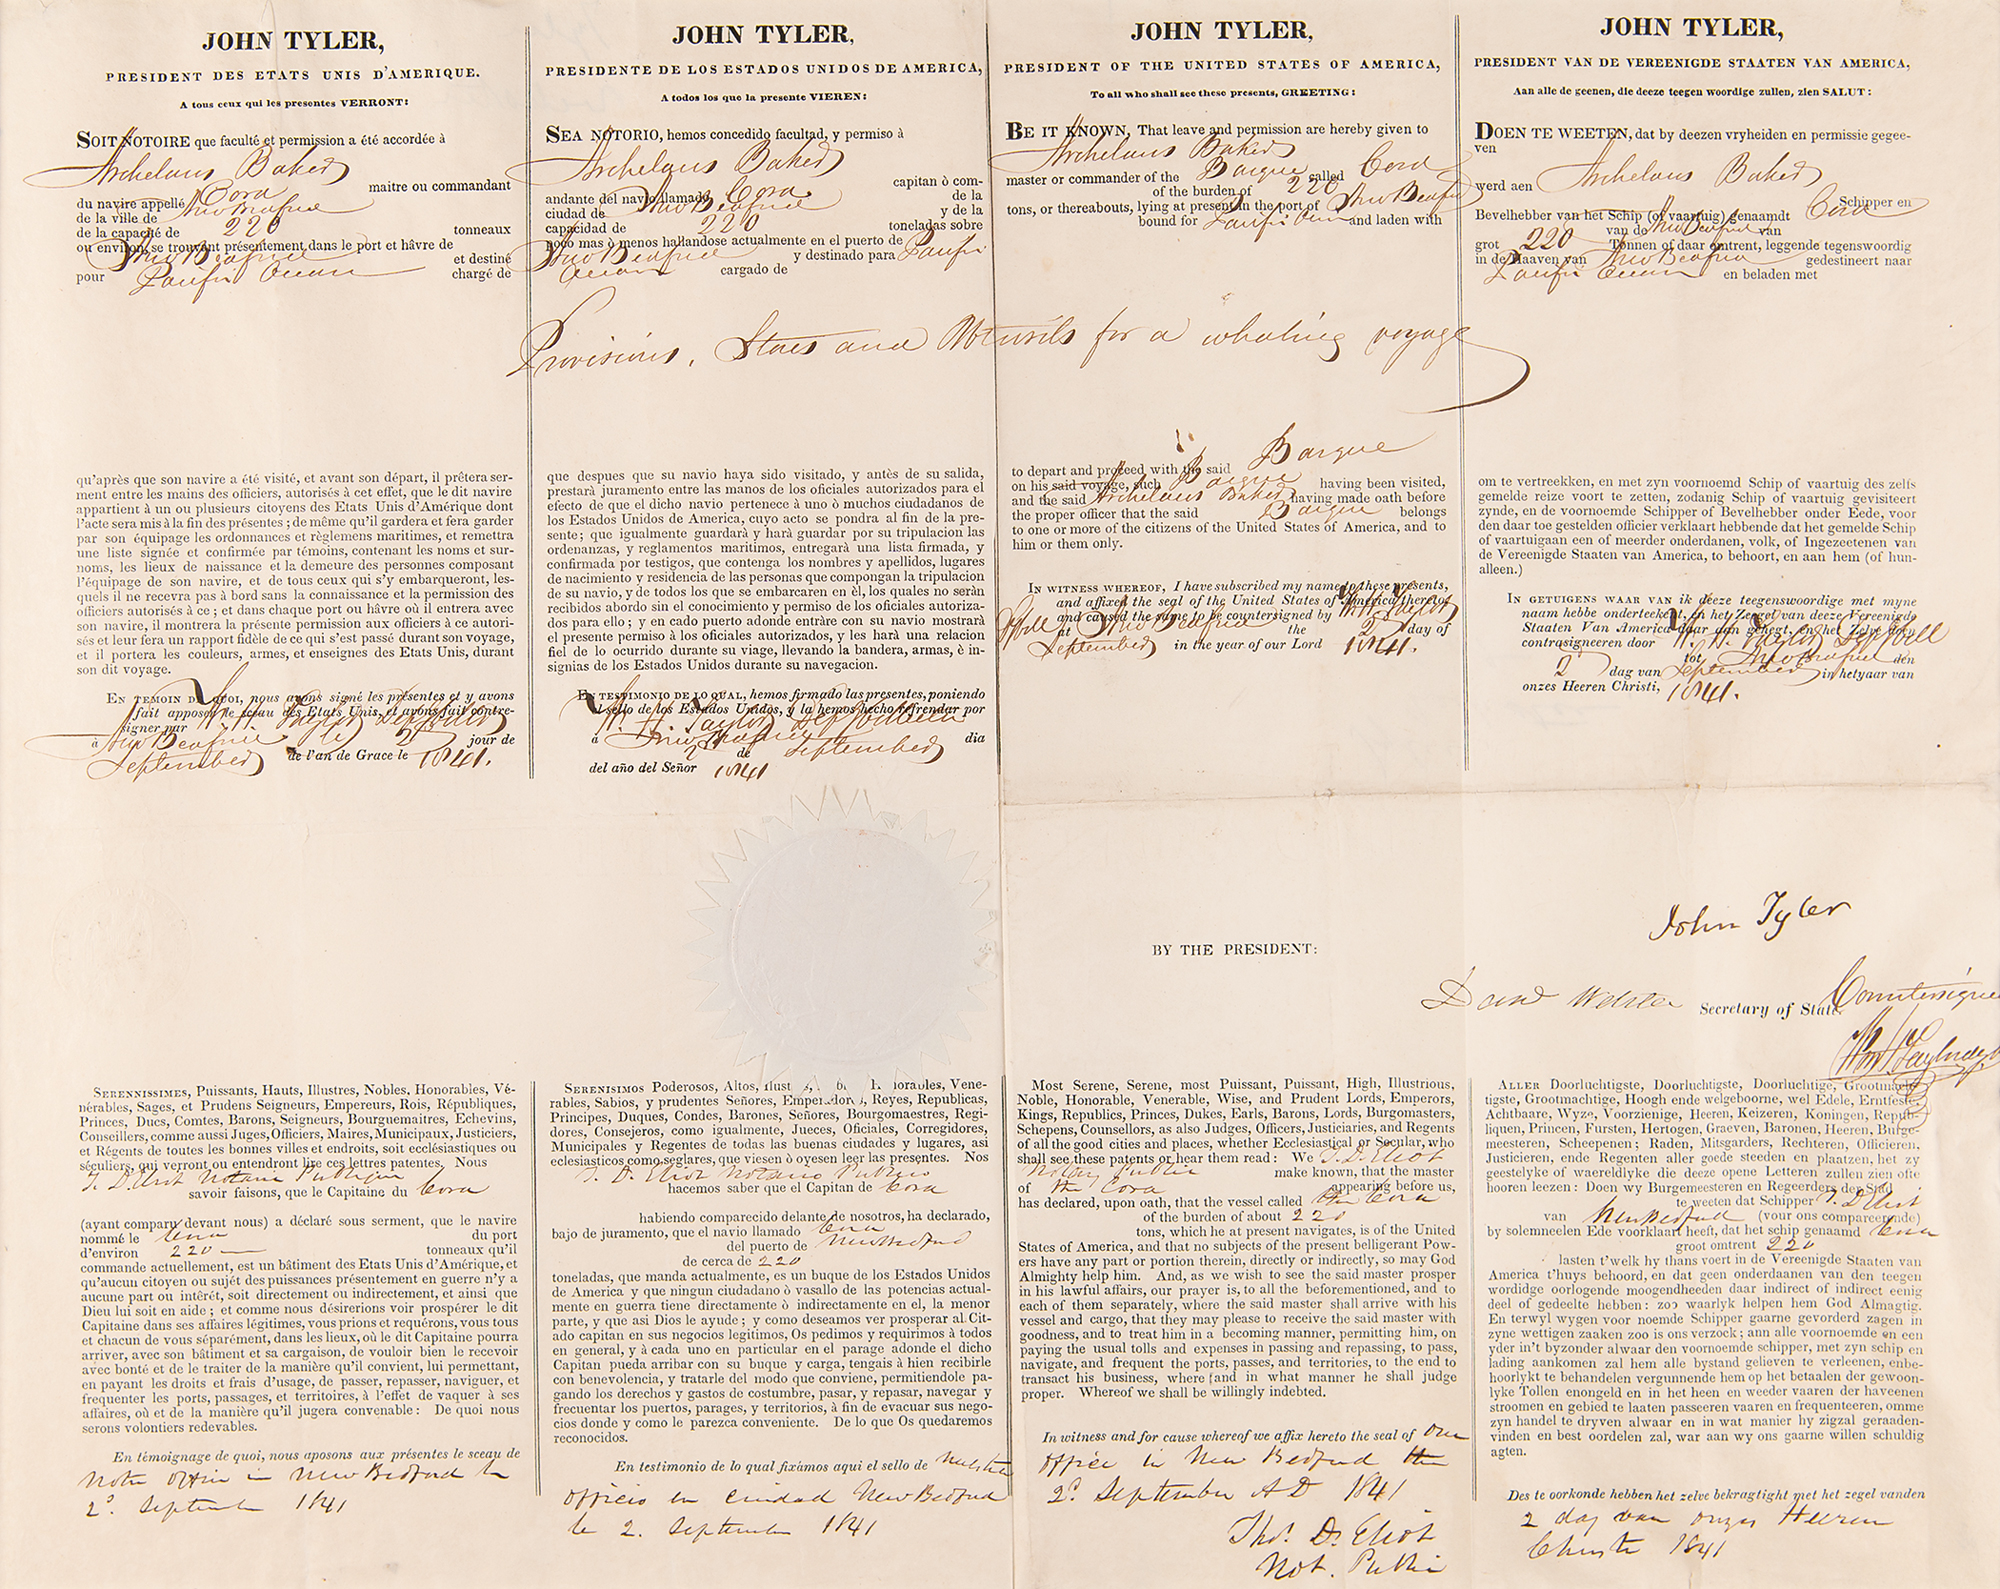 JOHN TYLER,
PRESIDENT DES ETATS UNIS D'AMERIQUE.
A tous ceux qui les presentes VERRONT:
SOIT NOTOIRE que faculté et permission a été accordée à
Archelaus Baker
maitre ou commandant
du navire appellé Cora
de la ville de New Bedford
de la capacité de 220 tonneaux
ou environ, se trouvant présentement dans le port et hâvre de
New Bedford et destiné
pour Pacific Ocean chargé de
JOHN TYLER,
PRESIDENTE DE LOS ESTADOS UNIDOS DE AMERICA,
A todos los que la presente VIEREN:
SEA NOTORIO, hemos concedido facultad, y permiso à
Archelaus Baker
capitan ò com-
andante del navio llamado Cora de la
ciudad de New Bedford y de la
capacidad de 220 toneladas sobre
poco mas ò menos hallandose actualmente en el puerto de
New Bedford y destinado para Pacific
Ocean cargado de
JOHN TYLER,
PRESIDENT OF THE UNITED STATES OF AMERICA,
To all who shall see these presents, GREETING:
BE IT KNOWN, That leave and permission are hereby given to
Archelaus Baker
master or commander of the Barque called Cora
of the burden of 220
tons, or thereabouts, lying at present in the port of New Bedford
bound for Pacific Ocean and laden with
JOHN TYLER,
PRESIDENT VAN DE VEREENIGDE STAATEN VAN AMERICA,
Aan alle de geenen, die deeze teegen woordige zullen, zien SALUT:
DOEN TE WEETEN, dat by deezen vryheiden en permissie gegee-
ven
werd aen Archelaus Baker Schipper en
Bevelhebber van het Schip (of vaartuig) genaamdt Cora
van de New Bedford van
grot 220 Tonnen of daar omtrent, leggende tegenswoordig
in de Haaven van New Bedford gedestineert naar
Pacific Ocean en beladen met
Provisions, Stores and Utensils for a whaling voyage
qu'après que son navire a été visité, et avant son départ, il prêtera ser-
ment entre les mains des officiers, autorisés à cet effet, que le dit navire
appartient à un ou plusieurs citoyens des Etats Unis d'Amérique dont
l'acte sera mis à la fin des présentes; de même qu'il gardera et fera garder
par son équipage les ordonnances et règlemens maritimes, et remettra
une liste signée et confirmée par témoins, contenant les noms et sur-
noms, les lieux de naissance et la demeure des personnes composant
l'équipage de son navire, et de tous ceux qui s'y embarqueront, les-
quels il ne recevra pas à bord sans la connaissance et la permission des
officiers autorisés à ce; et dans chaque port ou hâvre où il entrera avec
son navire, il montrera la présente permission aux officiers à ce autori-
sés et leur fera un rapport fidèle de ce qui s'est passé durant son voyage,
et il portera les couleurs, armes, et enseignes des Etats Unis, durant
son dit voyage.
EN TEMOIN DE QUOI, nous avons signé les présentes et y avons
fait apposer le sceau des Etats Unis, et avons fait contre-
signer par
à New Bedford le 2 jour de
September de l'an de Grace le 1841.
que despues que su navio haya sido visitado, y antès de su salida,
prestará juramento entre las manos de los oficiales autorizados para el
efecto de que el dicho navio pertenece à uno ò muchos ciudadanos de
los Estados Unidos de America, cuyo acto se pondra al fin de la pre-
sente; que igualmente guardará y hará guardar por su tripulacion las
ordenanzas, y reglamentos maritimos, entregará una lista firmada, y
confirmada por testigos, que contenga los nombres y apellidos, lugares
de nacimiento y residencia de las personas que compongan la tripulacion
de su navio, y de todos los que se embarcaren en èl, los quales no seràn
recibidos abordo sin el conocimiento y permiso de los oficiales autoriza-
dos para ello; y en cado puerto adonde entràre con su navio mostrarà
el presente permiso à los oficiales autorizados, y les harà una relacion
fiel de lo ocurrido durante su viage, llevando la bandera, armas, è in-
signias de los Estados Unidos durante su navegacion.
EN TESTIMONIO DE LO QUAL, hemos firmado las presentes, poniendo
el sello de los Estados Unidos, y la hemos hecho refrendar por
à New Bedford dia
2 de September
del año del Señor 1841
to depart and proceed with the said Barque
on his said voyage, such Barque having been visited,
and the said Archelaus Baker having made oath before
the proper officer that the said Barque belongs
to one or more of the citizens of the United States of America, and to
him or them only.
IN WITNESS WHEREOF, I have subscribed my name to these presents,
and affixed the seal of the United States of America thereto,
and caused the same to be countersigned by
at New Bedford the 2 day of
September in the year of our Lord 1841.
om te vertreekken, en met zyn voornoemd Schip of vaartuig des zelfs
gemelde reize voort te zetten, zodanig Schip of vaartuig gevisiteert
zynde, en de voornoemde Schipper of Bevelhebber onder Eede, voor
den daar toe gestelden officier verklaart hebbende dat het gemelde Schip
of vaartuigaan een of meerder onderdanen, volk, of Ingezeetenen van
de Vereenigde Staaten van America, to behoort, en aan hem (of hun-
alleen.)
IN GETUIGENS WAAR VAN ik deeze teegenswoordige met myne
naam hebbe onderteekent, en het Zeegol van deeze Vereenigde
Staaten Van America daar aan gehegt, en het Zelve doen
contrasigneeren door
tot New Bedford den
2 dag van September in het yaar van
onzes Heeren Christi, 1841.
John Tyler
BY THE PRESIDENT:
Danl Webster Secretary of State.
Countersigned
SERENNISSIMES, Puissants, Hauts, Illustres, Nobles, Honorables, Vé-
nérables, Sages, et Prudens Seigneurs, Empereurs, Rois, Républiques,
Princes, Ducs, Comtes, Barons, Seigneurs, Bourguemaitres, Echevins,
Conseillers, comme aussi Juges, Officiers, Maires, Municipaux, Justiciers,
et Régents de toutes les bonnes villes et endroits, soit ecclésiastiques ou
séculiers, qui verront ou entendront lire ces lettres patentes. Nous
T. D. Eliot Notaire Publique
savoir faisons, que le Capitaine du Cora
(ayant comparu devant nous) a déclaré sous serment, que le navire
nommé le Cora du port
d'environ 220 tonneaux qu'il
commande actuellement, est un bâtiment des Etats Unis d'Amérique, et
qu'aucun citoyen ou sujét des puissances présentement en guerre n'y a
aucune part ou intérêt, soit directement ou indirectement, et ainsi que
Dieu lui soit en aide; et comme nous désirerions voir prospérer le dit
Capitaine dans ses affaires légitimes, vous prions et requérons, vous tous
et chacun de vous séparément, dans les lieux, où le dit Capitaine pourra
arriver, avec son bâtiment et sa cargaison, de vouloir bien le recevoir
avec bonté et de le traiter de la manière qu'il convient, lui permettant,
en payant les droits et frais d'usage, de passer, repasser, naviguer, et
frequenter les ports, passages, et territoires, à l'effet de vaquer à ses
affaires, où et de la manière qu'il jugera convenable: De quoi nous
serons volontiers redevables.
En témoignage de quoi, nous aposons aux présentes le sceau de
Notre Office in New Bedford le
2d. September 1841
SERENISIMOS Poderosos, Altos, Nobles, Honorables, Vene-
rables, Sabios, y prudentes Señores, Emperadores, Reyes, Republicas,
Principes, Duques, Condes, Barones, Señores, Bourgomaestres, Regi-
dores, Consejeros, como igualmente, Jueces, Oficiales, Corregidores,
Municipales y Regentes de todas las buenas ciudades y lugares, asi
eclesiasticos como seglares, que viesen ò oyesen leer las presentes. Nos
T. D. Eliot Notario Publico
hacemos saber que el Capitan de Cora
habiendo comparecido delante de nosotros, ha declarado,
bajo de juramento, que el navio llamado Cora
del puerto de New Bedford
de cerca de 220
toneladas, que manda actualmente, es un buque de los Estados Unidos
de America y que ningun ciudadano ò vasallo de las potencias actual-
mente en guerra tiene directamente ò indirectamente en el, la menor
parte, y que asi Dios le ayude; y como deseamos ver prosperar al Cit-
ado capitan en sus negocios legitimos, Os pedimos y requirimos à todos
en general, y à cada uno en particular en el parage adonde el dicho
Capitan pueda arribar con su buque y carga, tengais à hien recibirle
con benevolencia, y tratarle del modo que conviene, permitiendole pa-
gando los derechos y gastos de costumbre, pasar, y repasar, navegar y
frecuentar los puertos, parages, y territorios, à fin de evacuar sus nego-
cios donde y como le parezca conveniente. De lo que Os quedaremos
reconocidos.
En testimonio de lo qual fixàmos aqui el sello de
officio en ciudad New Bedford
le 2. September 1841
Most Serene, Serene, most Puissant, Puissant, High, Illustrious,
Noble, Honorable, Venerable, Wise, and Prudent Lords, Emperors,
Kings, Republics, Princes, Dukes, Earls, Barons, Lords, Burgomasters,
Schepens, Counsellors, as also Judges, Officers, Justiciaries, and Regents
of all the good cities and places, whether Ecclesiastical or Secular, who
shall see these patents or hear them read: We T. D. Eliot
Notary Public make known, that the master
of the Cora appearing before us,
has declared, upon oath, that the vessel called the Cora
of the burden of about 220
tons, which he at present navigates, is of the United
States of America, and that no subjects of the present belligerant Pow-
ers have any part or portion therein, directly or indirectly, so may God
Almighty help him. And, as we wish to see the said master prosper
in his lawful affairs, our prayer is, to all the beforementioned, and to
each of them separately, where the said master shall arrive with his
vessel and cargo, that they may please to receive the said master with
goodness, and to treat him in a becoming manner, permitting him, on
paying the usual tolls and expenses in passing and repassing, to pass,
navigate, and frequent the ports, passes, and territories, to the end to
transact his business, where and in what manner he shall judge
proper. Whereof we shall be willingly indebted.
In witness and for cause whereof we affix hereto the seal of Our
office in New Bedford the
2d. September AD 1841
Thos. D. Eliot
Not. Public
ALLER Doorluchtigste, Doorluchtigste, Doorluchtige, Grootmach-
tigste, Grootmachtige, Hoogh ende welgeboorne, wel Edele, Erntfeste,
Achtbaare, Wyze, Voorzienige, Heeren, Keizeren, Koningen, Repub-
liquen, Princen, Fursten, Hertogen, Graeven, Baronen, Heeren, Burge-
meesteren, Scheepenen; Raden, Mitsgarders, Rechteren, Officieren,
Justicieren, ende Regenten aller goede steeden en plaatzen, het zy
geestelyke of waereldlyke die deeze opene Letteren zullen zien ofte
hooren leezen: Doen wy Burgemeesteren en Regeerders der Stad
te weeten dat Schipper T. D. Eliot
van New Bedford (vour ons compareerende)
by solemneelen Ede voorklaart heeft, dat het schip genaamd Cora
groot omtrent 220
lasten t'welk hy thans voert in de Vereenigde Staaten van
America t'huys behoord, en dat geen onderdaanen van den teegen
wordidge oorlogende moogendheeden daar indirect of indirect eenig
deel of gedeelte hebben: zoo waarlyk helpen hem God Almagtig.
En terwyl wygen voor noemde Schipper gaarne gevorderd zagen in
zyne wettigen zaaken zoo is ons verzock; ann alle voornoemde en een
yder in't byzonder alwaar den voornoemde schipper, met zyn schip en
lading aankomen zal hem alle bystand gelieven te verleenen, enbe-
hoorlykt te behandelen vergunnende hem op het betaalen der gewoon-
lyke Tollen enongeld en in het heen en weeder vaaren der haveenen
stroomen en gebied te laaten passeeren vaaren en frequenteeren, omme
zyn handel te dryven alwaar en in wat manier hy zigzal geraaden-
vinden en best oordelen zal, war aan wy ons gaarne willen schuldig
agten.
Des te oorkonde hebben het zelve bekragtight met het zegel vanden
2 dag van onzes Heeren
Christi 1841